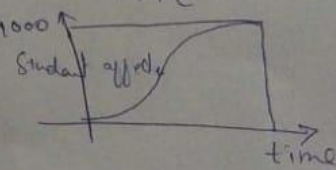 1000
Student affected
time